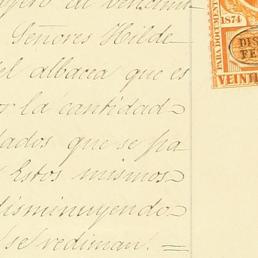 al vencimi
Señores Hilde
el albacea que es
or la cantidad
lados que se pa
Estos mismos
disminuyendo
se rediman. =
1874
PARA DOCUMENT
DIS
FE
VEINTI